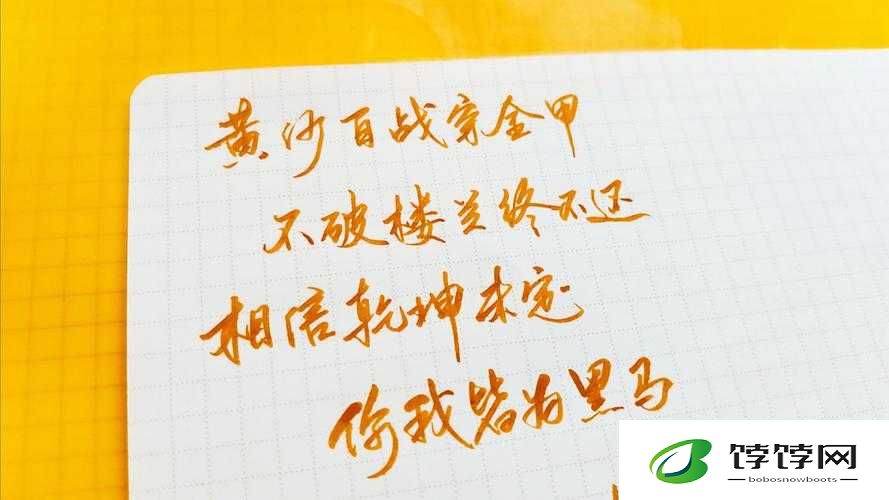 黄沙百战穿金甲
不破楼兰终不还
相信乾坤未定
你我皆为黑马
饽饽网
bobosnowboots